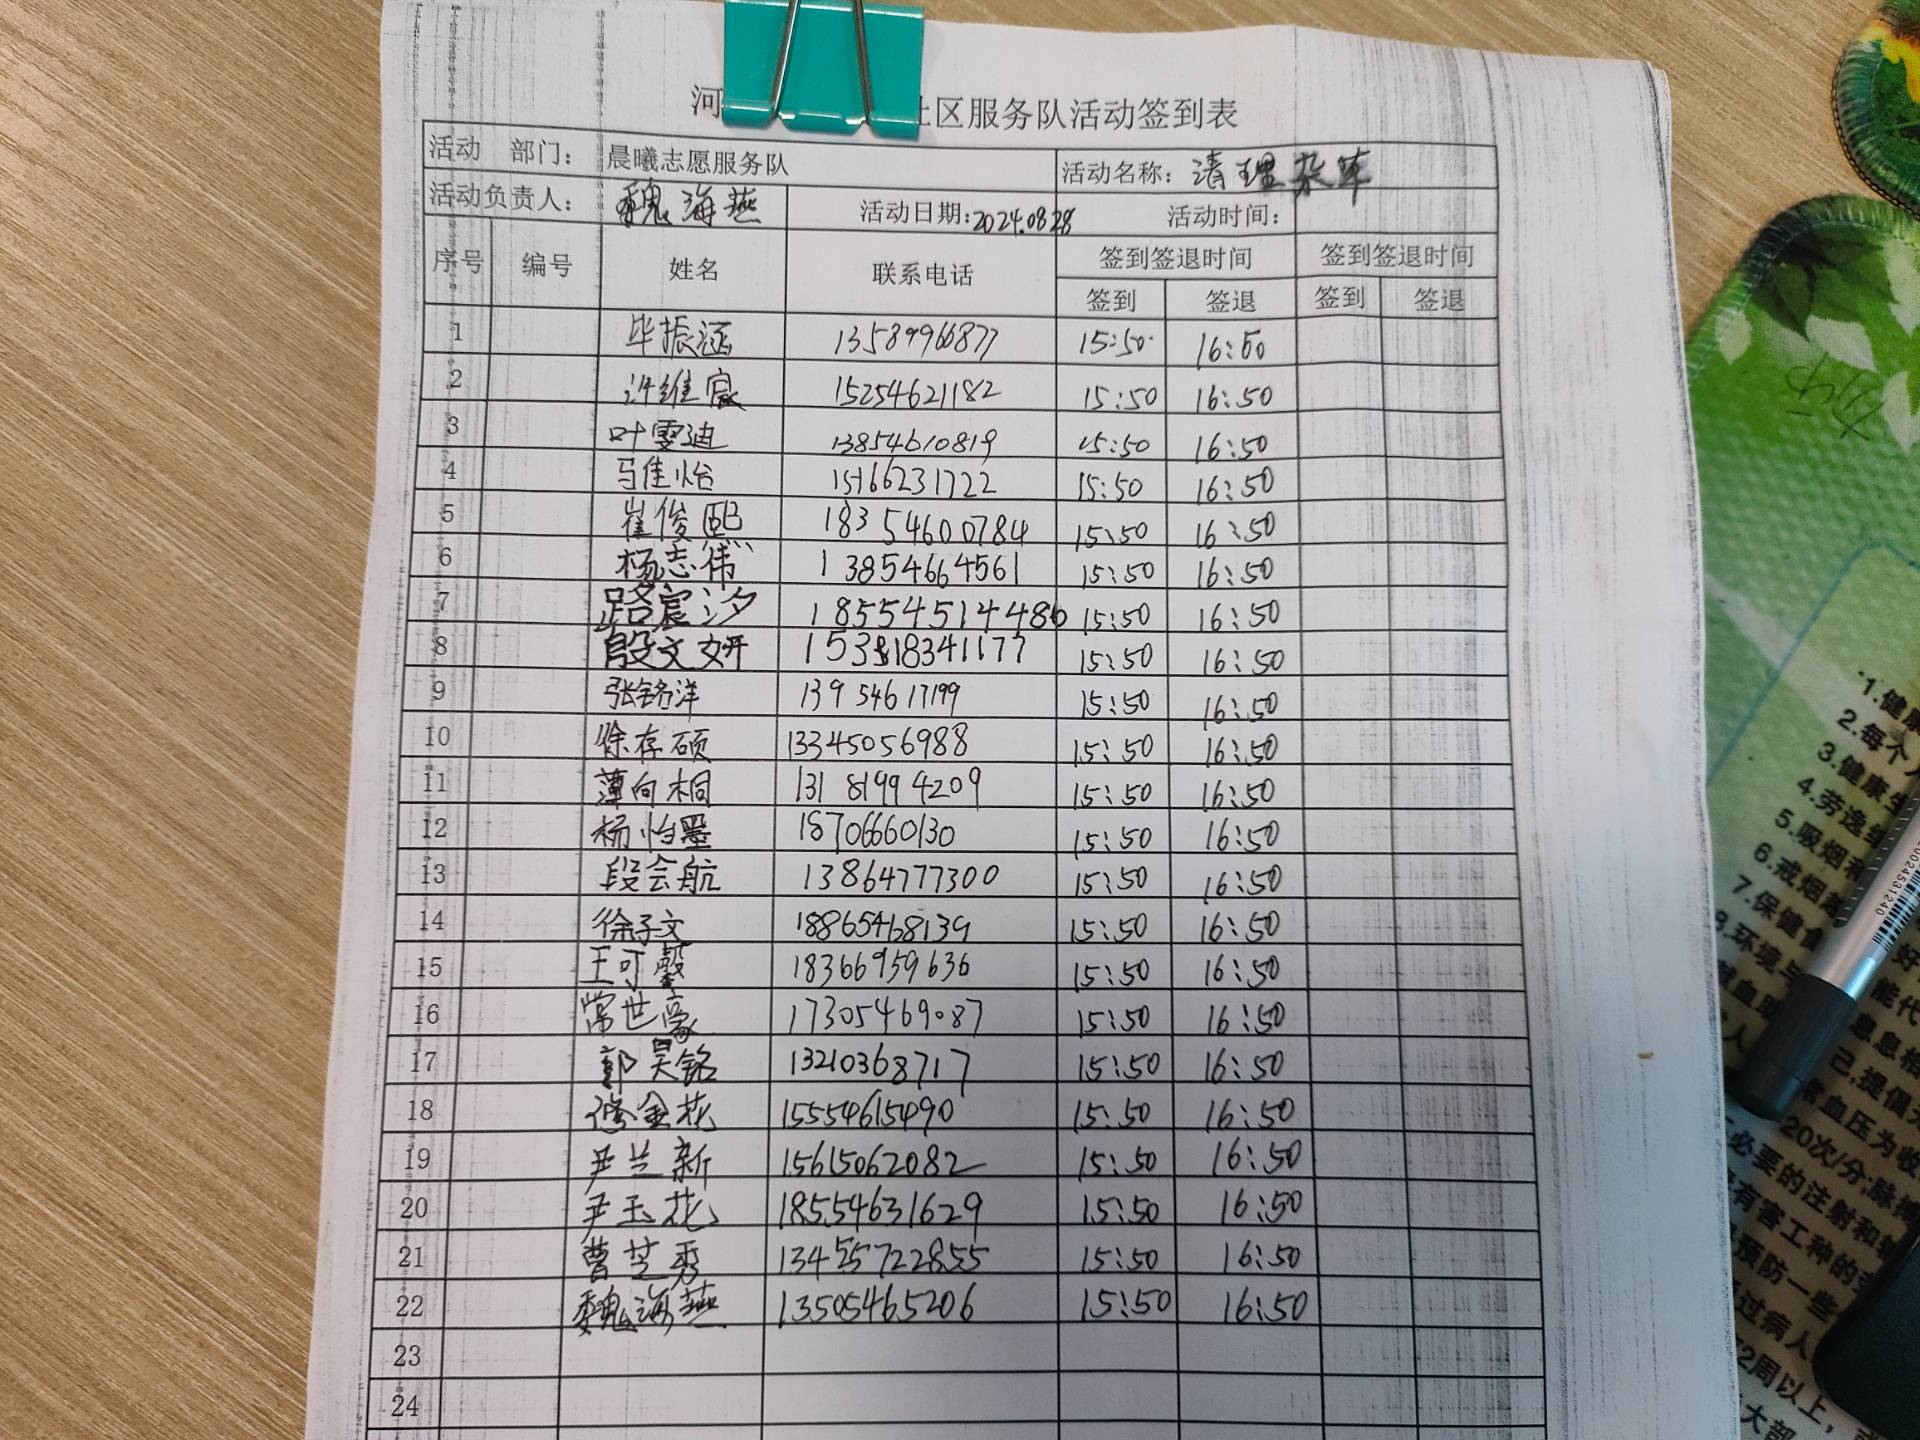 河 社区服务队活动签到表
活动 部门： 晨曦志愿服务队 活动名称：清理杂草
活动负责人： 魏海燕 活动日期：2024.08.28 活动时间：
序号 编号 姓名 联系电话 签到签退时间 签到签退时间
签到 签退 签到 签退
1 毕振涵 13589966877 15:50 16:50
2 许维宸 15254621182 15:50 16:50
3 叶雯迪 13854610819 15:50 16:50
4 马佳怡 15166231722 15:50 16:50
5 崔俊熙 18354600784 15:50 16:50
6 杨志伟 13854664561 15:50 16:50
7 路宸汐 15:50 16:50
8 殷文妍 15:50 16:50
9 张铭洋 13954617199 15:50 16:50
10 徐存硕 13345056988 15:50 16:50
11 薄向桐 13181994209 15:50 16:50
12 杨怡墨 18706660130 15:50 16:50
13 段会航 13864777300 15:50 16:50
14 徐子文 18865468139 15:50 16:50
15 王可馨 18366959636 15:50 16:50
16 常世豪 17305469087 15:50 16:50
17 郭昊铭 13210368717 15:50 16:50
18 修金花 15554615490 15:50 16:50
19 尹兰新 15615062082 15:50 16:50
20 尹玉花 18554631629 15:50 16:50
21 曹芝秀 13455722855 15:50 16:50
22 魏海燕 13505465206 15:50 16:50
23
24
1.健康
2.每个人
3.健康生
4.劳逸结
5.吸烟和
6.戒烟越
7.保健食
8.环境与
能代
息息相
己,提倡无
常血压为收
20次/分;脉搏
必要的注射和
有害工种的
预防一些
过病人
2周以上,
大部
002453​1240